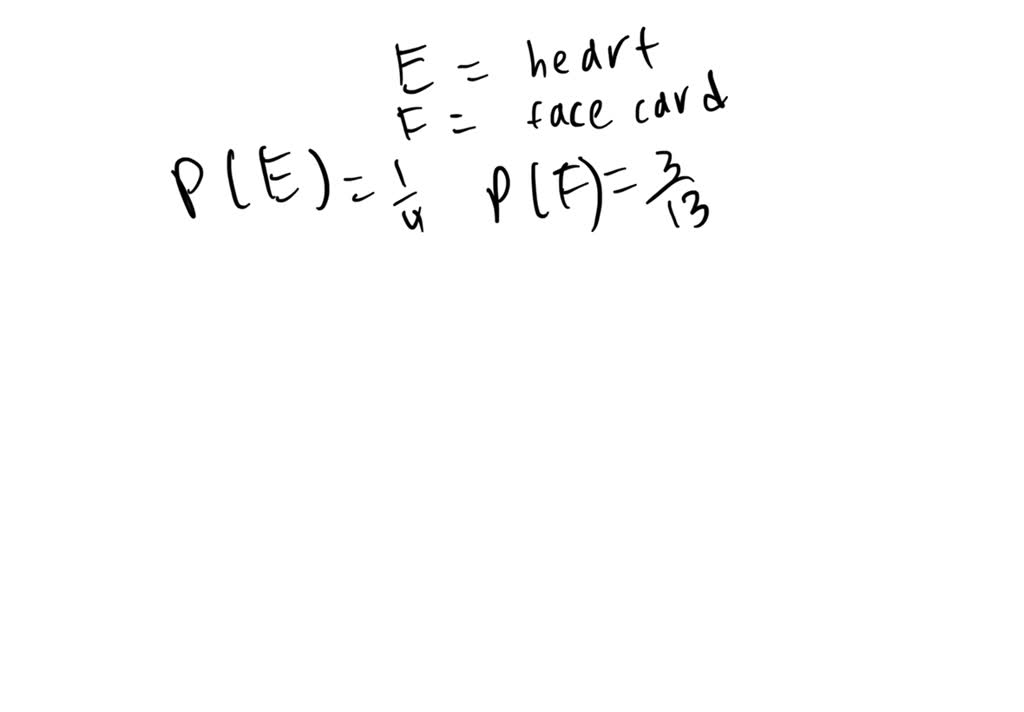 E = heart
F = face card
P(E) = 1/4 P(F) = 3/13